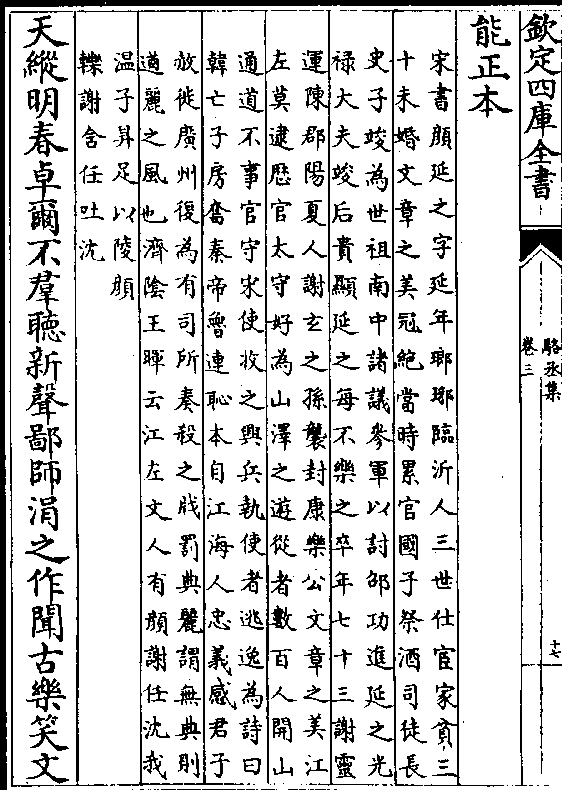 欽定四庫全書
駱丞集
卷三
十七
能正本
宋書顔延之字延年瑯琊臨沂人三世仕宦家貧三
十未婚文章之美冠絶當時累官國子祭酒司徒長
史子竣為世祖南中諸議參軍以討邵功進延之光
禄大夫竣后貴顯延之每不樂之卒年七十三謝靈
運陳郡陽夏人謝玄之孫襲封康樂公文章之美江
左莫逮歴官太守好為山澤之遊從者數百人開山
通道不事官守宋使收之興兵執使者逃逸為詩曰
韓亡子房奮秦帝魯連恥本自江海人忠義感君子
放徙廣州復為有司所奏殺之戕罰典麗謂無典則
遒麗之風也濟隂王暉云江左文人有顔謝任沈我
温子昇足以陵顔
轢謝含任吐沈
天縱明春卓爾不羣聽新聲鄙師涓之作聞古樂笑文